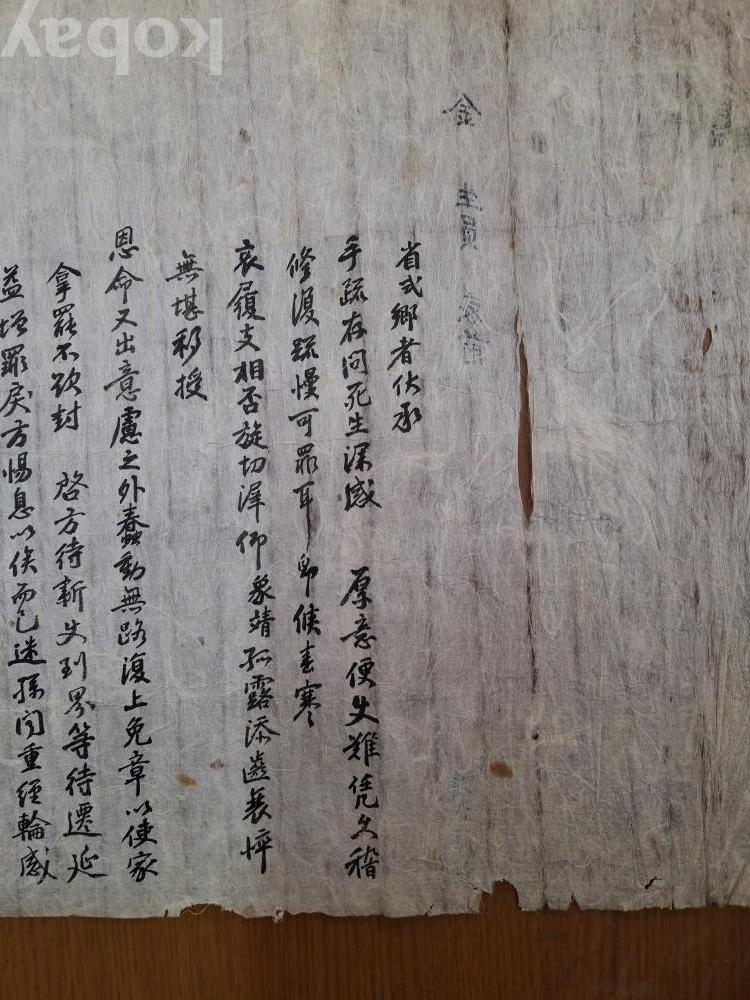 省式鄕者伏承
手疏存問死生深感 厚意便久難凭久稽
修復疏慢可罪耳 卽候春寒
哀履支相否旋切溯仰象靖孤露添齒衰悴
無堪移授
恩命又出意慮之外蠢動無路復上免章以使家
拿罷不欲封 啓方待新使到界等待遷延
益增罪戾方惕息以俟而已迷孫間重經輪感
金 生員
kobay